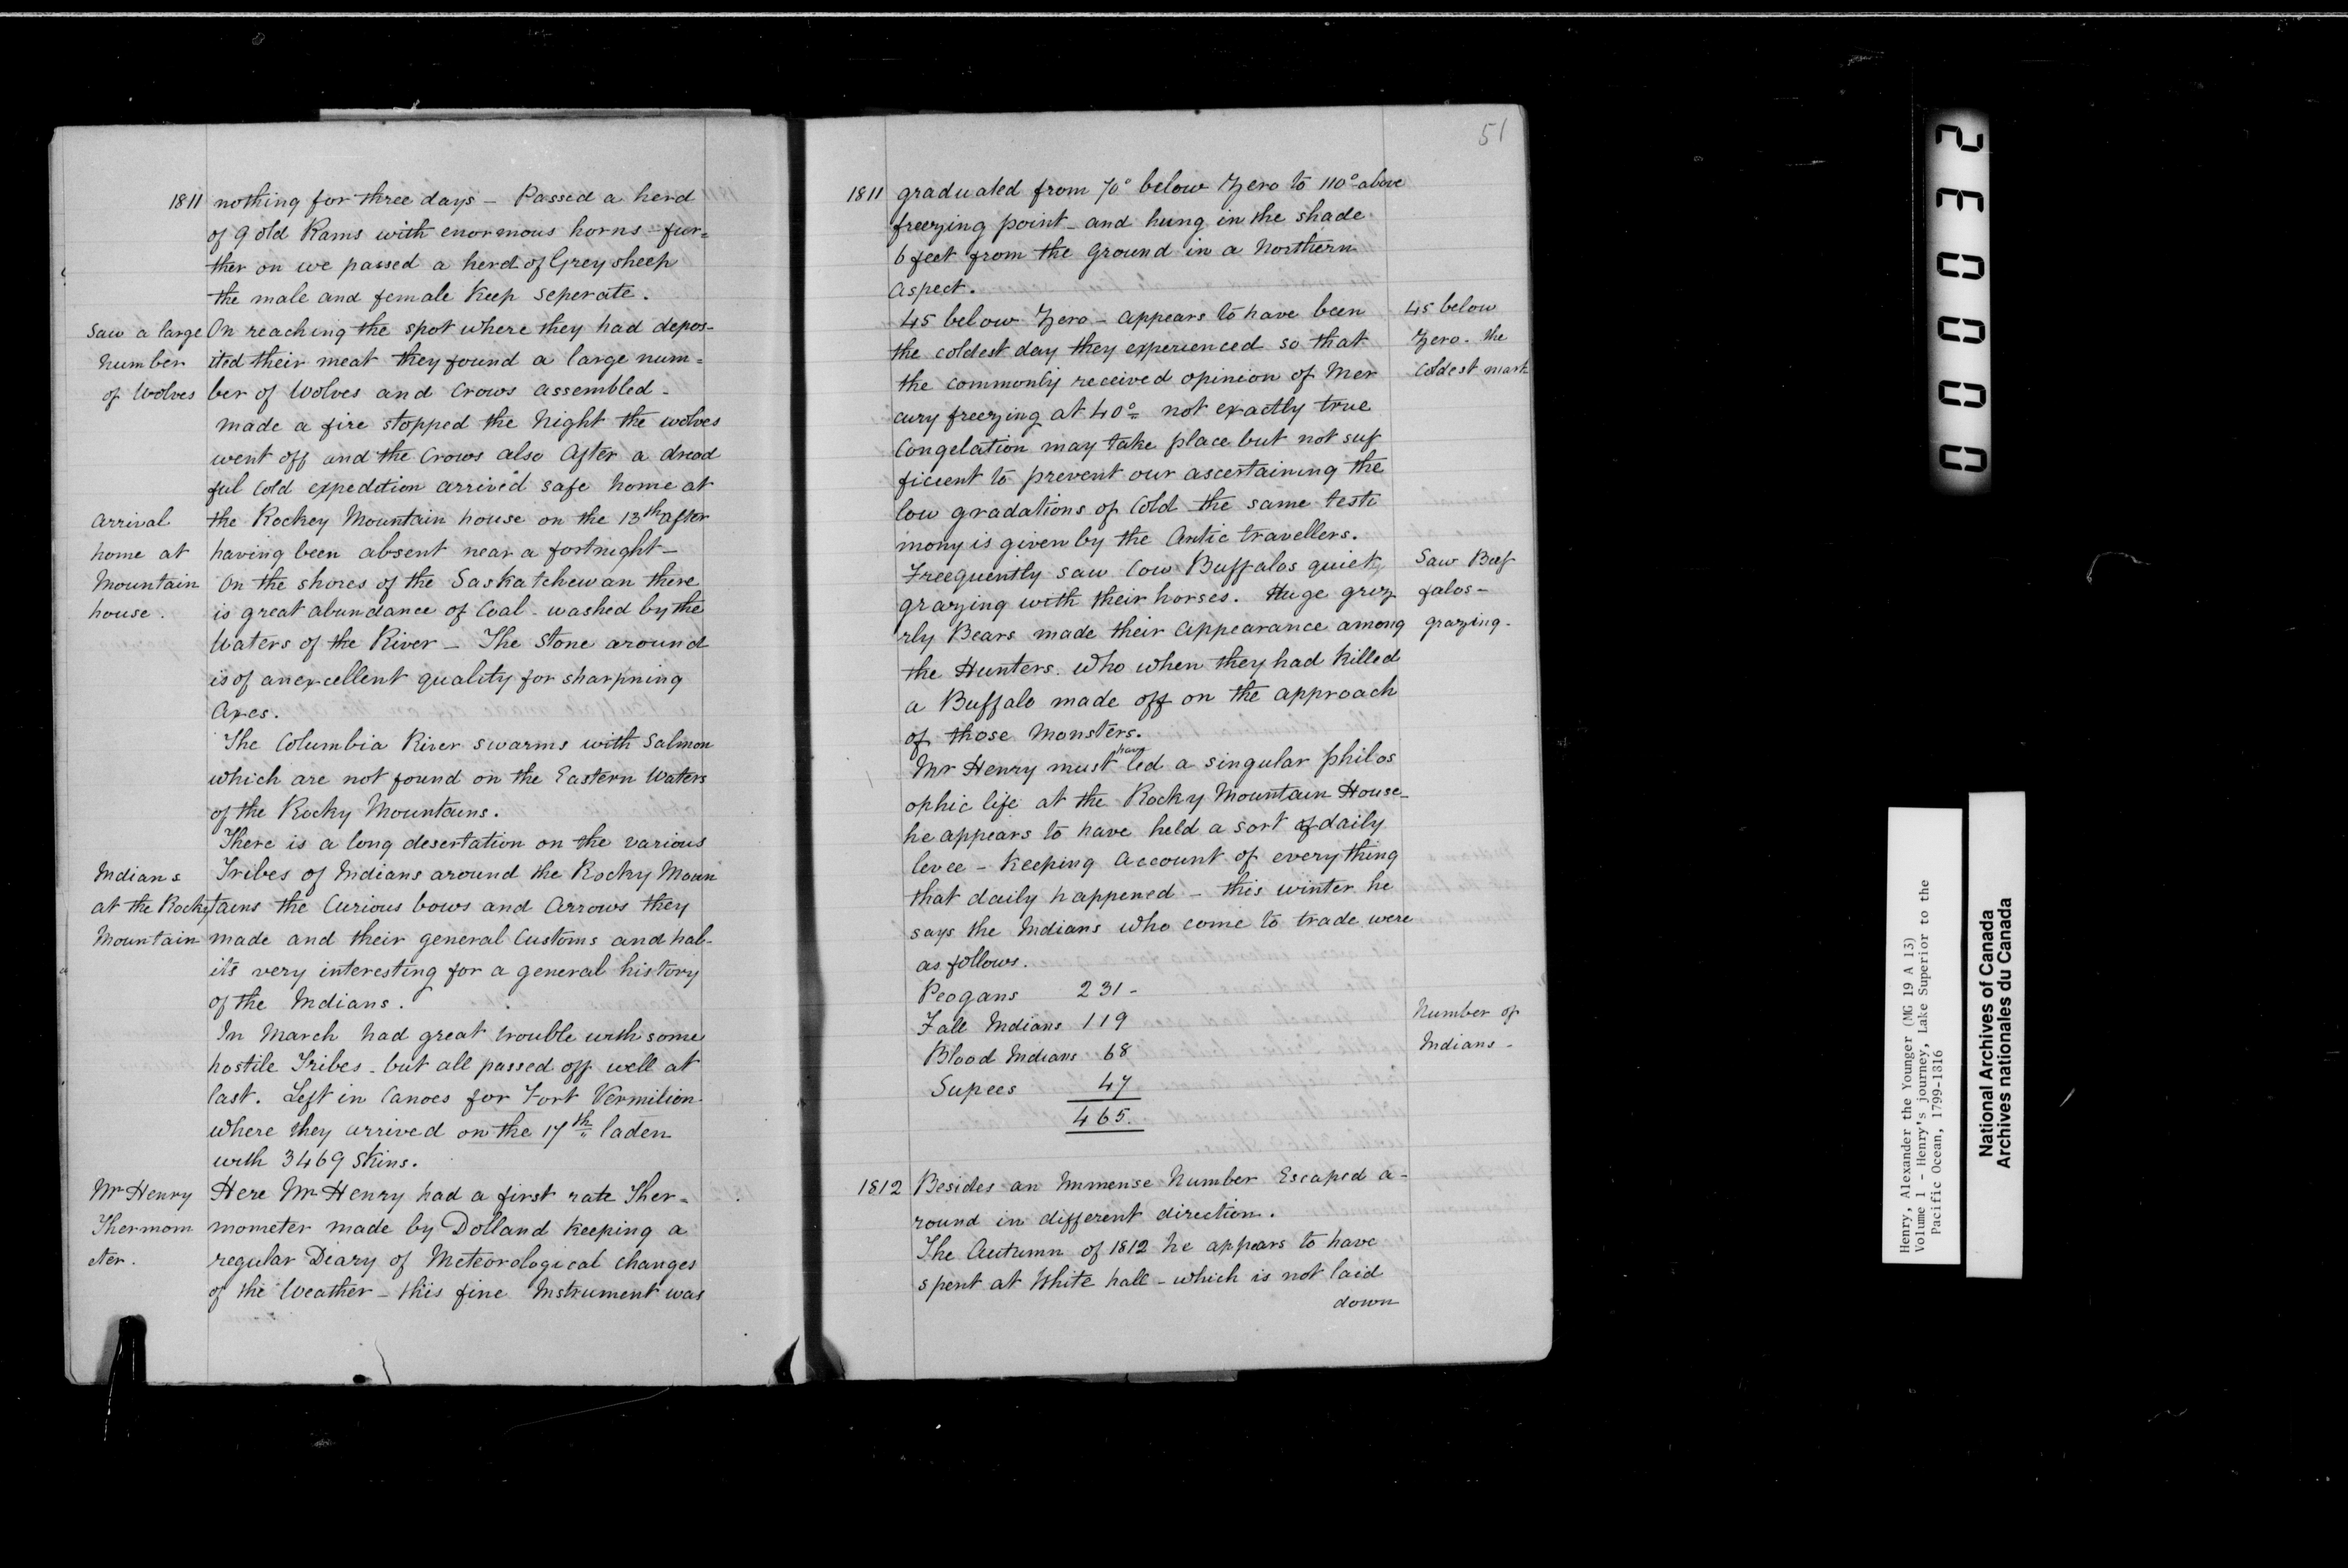 1811 nothing for three days – Passed a herd
of 9 old Rams with enormous horns – fur=
ther on we passed a herd of Grey sheep
the male and female keep seperate.
Saw a large On reaching the spot where they had depos-
Number ited their meat they found a large num=
of Wolves ber of Wolves and Crows assembled –
made a fire stopped the Night the wolves
went off and the Crows also After a dread
ful Cold expedition arrived safe home at
Arrival the Rockey Mountain house on the 13th after
home at having been absent near a fortnight –
Mountain On the shores of the Saskatchewan there
house. is great abundance of Coal – washed by the
Waters of the River – The Stone around
is of an excellent quality for sharpning
Axes.
The Columbia River swarms with Salmon
which are not found on the Eastern Waters
of the Rocky Mountains.
There is a long desertation on the various
Indians Tribes of Indians around the Rocky Moun
at the Rocky tains the Curious bows and Arrows they
Mountain made and their general Customs and hab-
its very interesting for a general history
of the Indians.
In March had great trouble with some
hostile Tribes – but all passed off well at
last. Left in Canoes for Fort Vermilion
where they arrived on the 17th laden
with 3469 Skins.
Mr Henry Here Mr Henry had a first rate Ther=
Thermom mometer made by Dolland keeping a
eter. regular Diary of Meteorological Changes
of the Weather – this fine Instrument was
51
1811 graduated from 70° below Zero to 110° above
freezing point – and hung in the shade
6 feet from the Ground in a Northern
Aspect.
45 below Zero – appears to have been 45 below
the coldest day they experienced so that Zero – the
the commonly received opinion of Mer Coldest mark
cury freezing at 40° not exactly true
Congelation may take place but not suf
ficient to prevent our ascertaining the
low gradations of Cold the same testi
mony is given by the Artic travellers.
Freequently saw Cow Buffalos quietly Saw Buf
grazing with their horses. Huge griz falos –
zly Bears made their appearance among grazing –
the Hunters. Who when they had killed
a Buffalo made off on the approach
of those Monsters.
Mr Henry must have led a singular philos
ophic life at the Rocky Mountain House –
he appears to have held a sort of daily
levee – keeping account of everything
that daily happened – this winter he
says the Indians who come to trade were
as follows.
Peogans 231 –
Fall Indians 119 Number of
Blood Indians 68 Indians –
Supees 47
465.
1812 Besides an Immense Number Escaped a-
round in different direction.
The Autumn of 1812 he appears to have
spent at White hall – which is not laid
down
000032
Henry, Alexander the Younger (MG 19 A 13)
Volume 1 - Henry's journey, Lake Superior to the
Pacific Ocean, 1799-1816
National Archives of Canada
Archives nationales du Canada